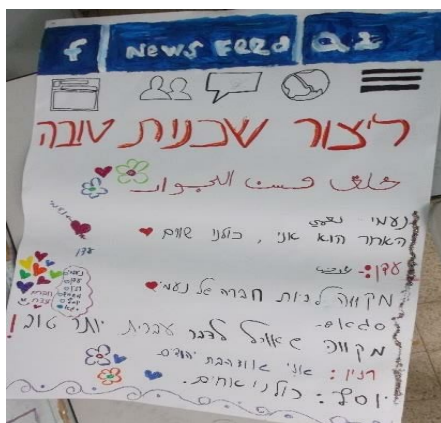 f NEWS FEED
ליצור שכנות טובה
خلق حسن الجوار
נעמי -
האחר הוא אני, כולנו שווים
עדן:-
מקווה להיות חברה של נעמי
מקווה לדבר עברית יותר טוב!
רנין: אני אוהבת יהודים
יוסף: כולנו אחים.
עדן